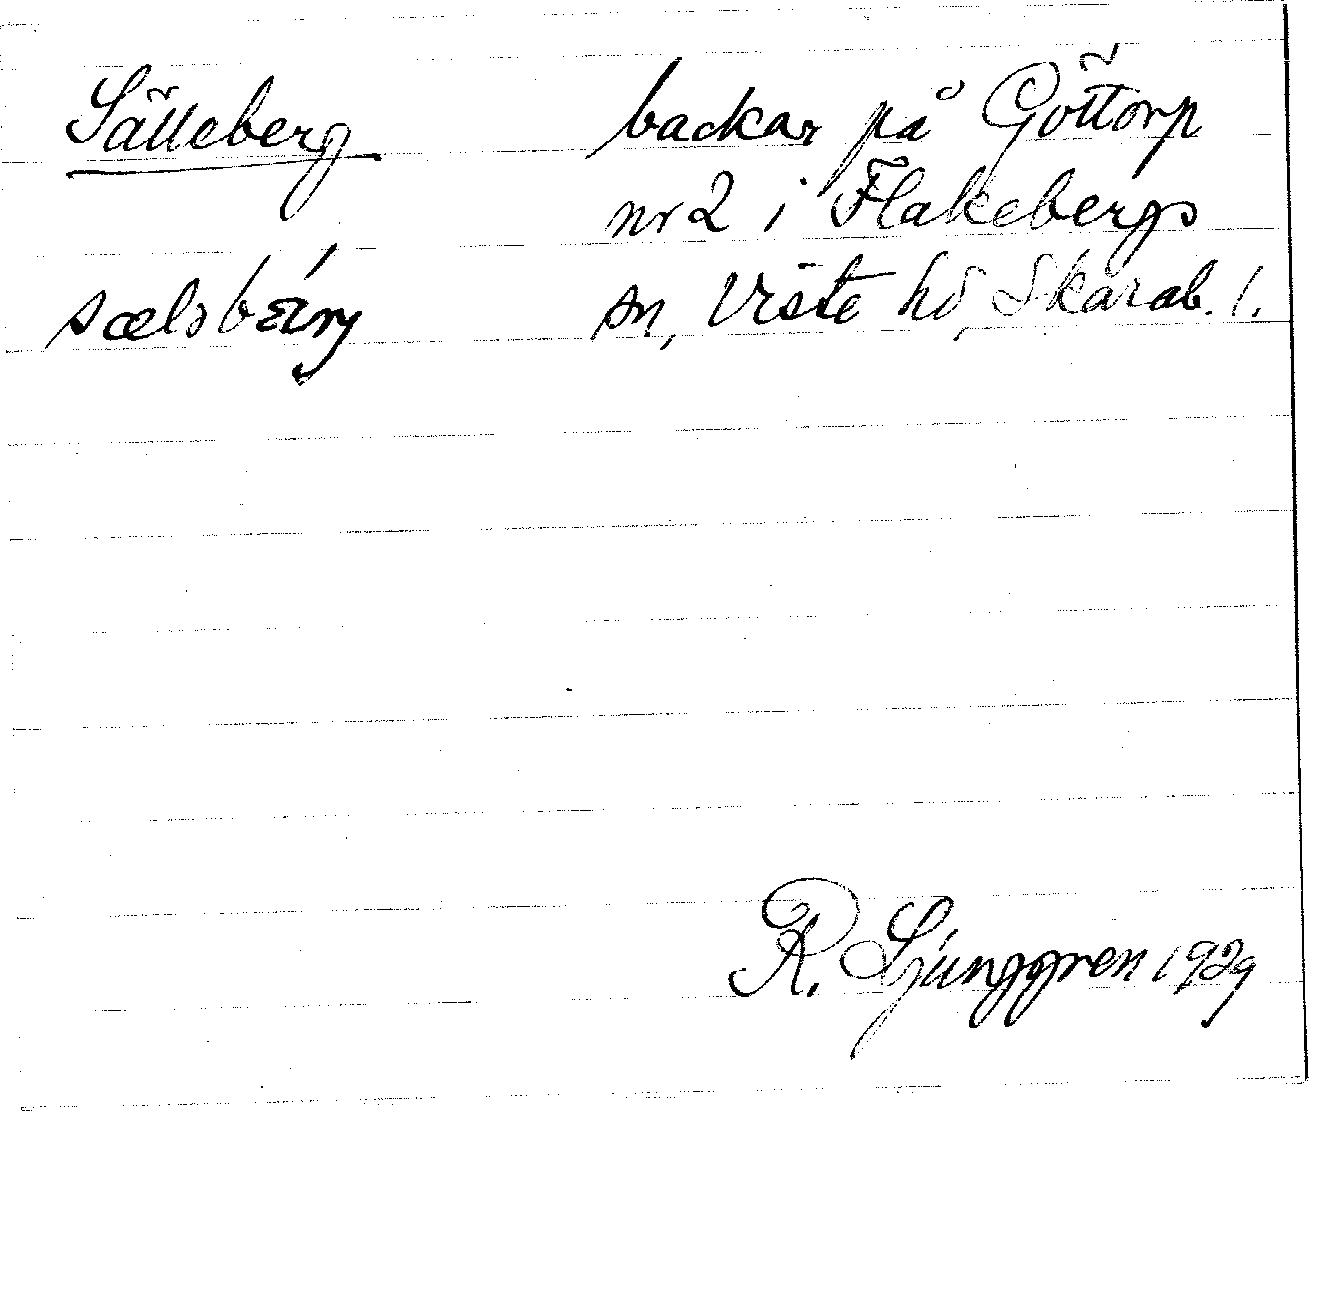 Sälleberg
backar på Göttorp
nr 2 i Flakebergs
sn, Viste hd, Skarab. l.
R. Ljunggren 1929